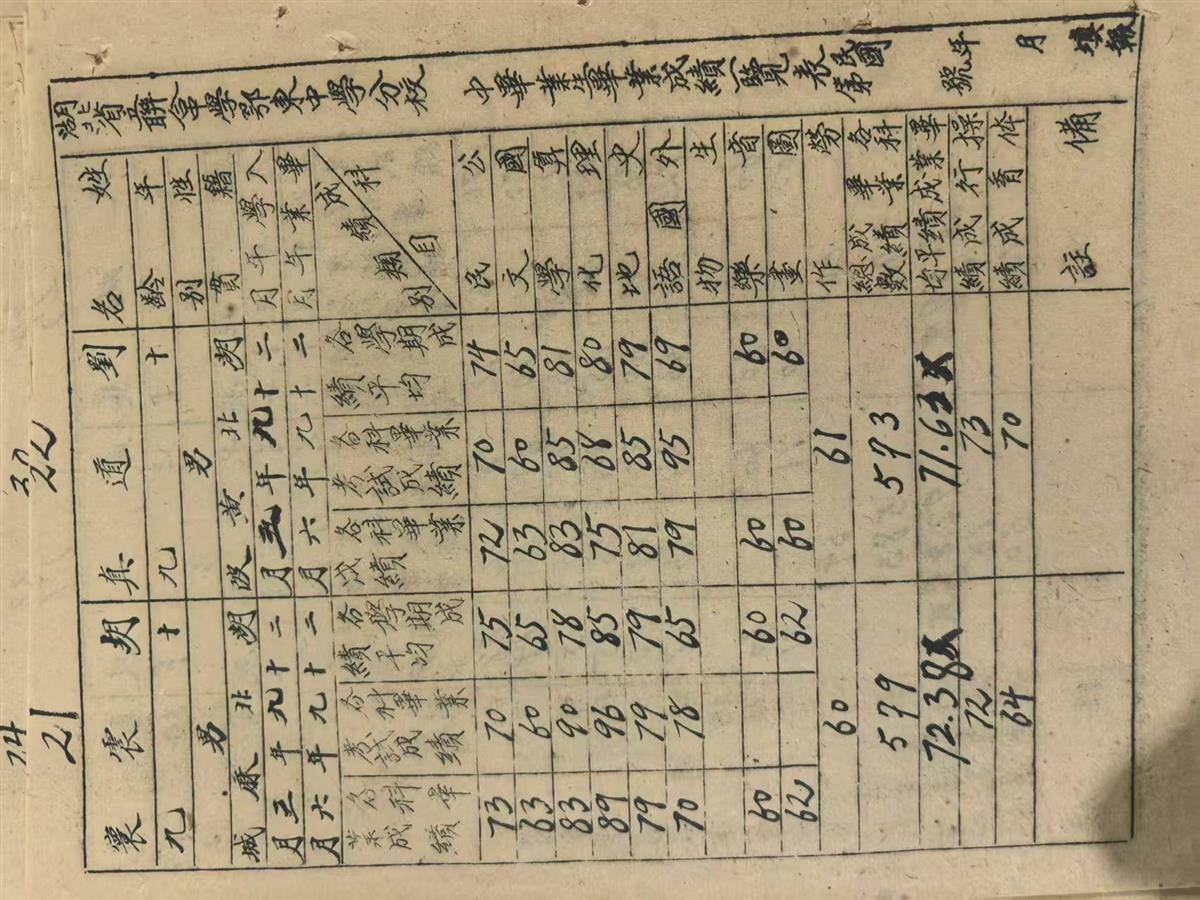 湖北省聯合中學鄂東中學分校 中畢業生畢業成績一覽表 民國 年 月 填報
第 號
姓名 劉道真 胡震寰
年齡 十九 十九
性別 男 男
籍貫 湖北黄陂 湖北麻城
入學年月 二十九年五月 二十九年三月
畢業年月 二十九年六月 二十九年六月
科目 成績類別 各學期成績平均 各科畢業考試成績 各科畢業成績 各學期成績平均 各科畢業考試成績 各科畢業成績
公民 74 70 72 75 70 73
國文 65 60 63 65 60 63
算學 81 85 83 78 90 83
理化 80 68 75 85 96 89
史地 79 85 81 79 79 79
外國語 69 95 79 65 78 70
生物
音樂 60 60 60 60
圖畫 60 60 62 62
勞作 61 60
各科畢業成績總數 573 579
畢業成績平均 71.63 72.38
操行成績 73 72
体育成績 70 64
備註
22
21